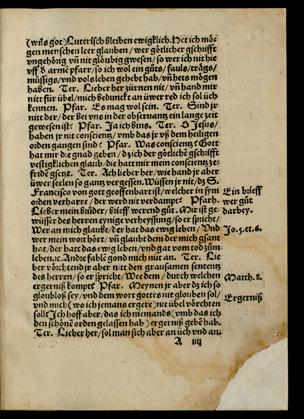 (wils got) Luterisch bleiben ewigklich. Het ich mö
gen menschen leer glauben / wer götlicher gschrifft
ungehörig vñ nit glöubig gwesen / so wer ich nit hie
vff ō armē pfarr / so ich wol ein gůts / fauls / trägs /
müssigs / vnd vollesleben gehabt hab / vñ hets mögen
haben. Ter. Lieber her zürnen nit / vñ hand mir
nitt für übel / mich beduncket an üwer red ich söl üch
kennen. Pfarr. Es mag wol sein. Ter. Sind jr
nitt der / der bei vns in der obseruantz ein lange zeit
gewesen ist? Pfar. Ja ich bins. Ter. O Jesus /
haben jr nit conscientz / vmb das jr vß dem heiligen
orden gangen sind? Pfar. Was conscientz? Gott
hat mir die gnad geben / dz ich der götliche gschrifft
vestigklichen glaub / die hatt mir mein conscientz ze
fridē gsetzt. Ter. Ach lieber her / wie hand jr aber
üwer seelen so gantz vergessen. Wüssen jr nit / dz S.
Francisco von gott geoffenbart ist / welcher in sym
orden verharre / der werd nit verdampt? Pfarh.
Lieber mein brůder / brieff werend gůt. Mir ist ge
wüsser des herren eynige verheyssung / so er spricht /
Wer an mich glaubt / der hat das ewig leben / Vnd
wer mein wort hört / vñ glaubt dem der mich gsant
hat / der hatt das ewig leben / vnd gat vom tod zům
leben. etc. Andre fablē gond mich nüt an. Ter. Lie
ber vörchtend jr aber nitt den grausamen sententz
des herren / so er spricht / Wee dem / durch welchen
ergerniß kompt? Pfar. Meynen jr aber dz ich so
gloubloß sey / vnd dem wort gottes nit glouben söl /
vnd mich (wo ich jemans ergere) nit übel vörchten
sölt? Ich hoff aber / das ich niemands (vmb das ich
den schönē orden gelassen hab) ergerniß gebē hab.
Ter. Lieber her / sol man sich aber an üch vnd an-
A iiij
Ein brieff
wer gůt
darbey.
Jo. 5. et. 6.
Matth. 8.
Ergerniß